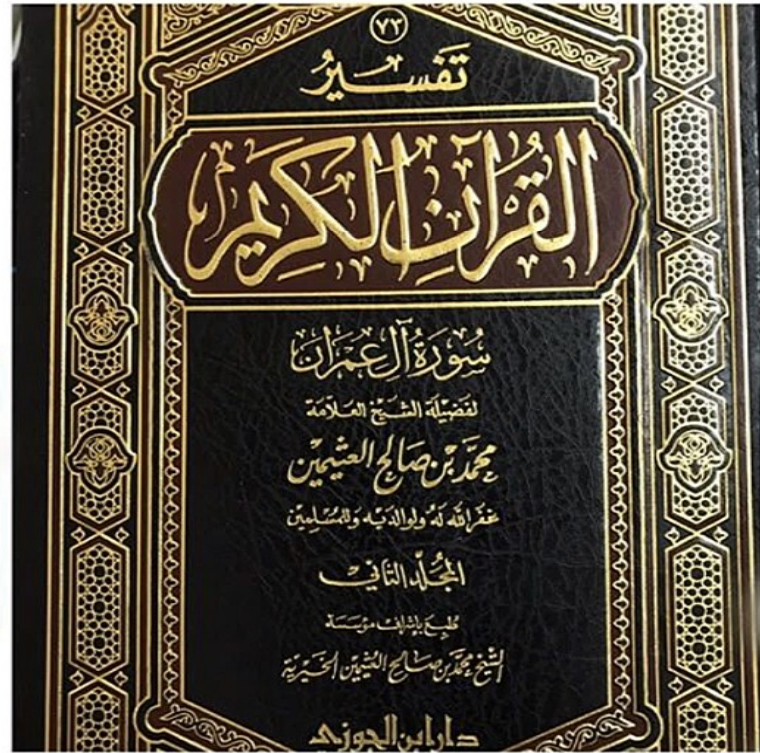 ٧٣
تَفْسِيرُ
القُرْآنِ الكَرِيمِ
سُورَةُ آلِ عِمْرَانَ
لفَضِيلَة الشَّيْخ العَلَّامَة
محمَّد بْن صَالِح العثَيمِين
غَفَرَ اللَّه لَهُ ولوالدَيْه وَللمُسْلِمِين
المُجَلّد الثَّاني
طُبِعَ بإشراف مؤسّسَة
الشيخ محمَّد بن صَالِح العثيمين الخيريّة
دار ابن الجوزي